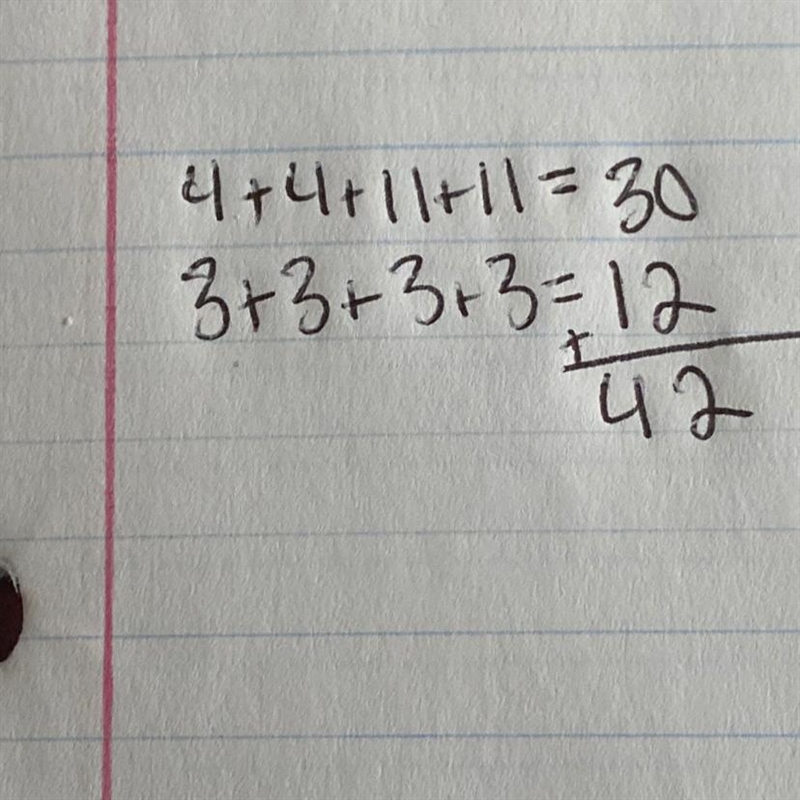 4+4+11+11=30
3+3+3+3=12
+
42